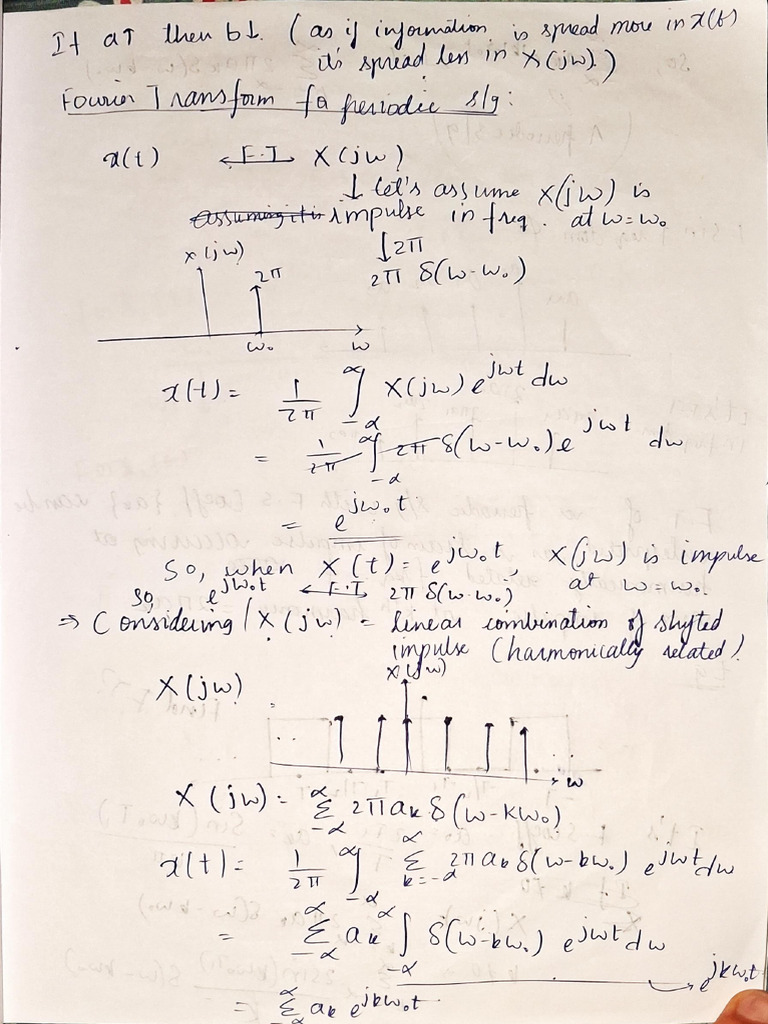 If a↑ then b↓. (as if information is spread more in x(t)
it's spread less in X(jω).)
Fourier Transform for periodic s/g:
x(t) ←F.T→ X(jω)
↓ let's assume X(jω) is
assuming it is impulse in freq. at ω=ω₀
X(jω)
↓2π
2π
2π δ(ω-ω₀)
ω₀ ω
x(t) = 1/2π ∫_{-∞}^{∞} X(jω) e^{jωt} dω
= 1/2π ∫_{-∞}^{∞} 2π δ(ω-ω₀) e^{jωt} dω
= e^{jω₀t}
So, when X(t) = e^{jω₀t}, X(jω) is impulse
at ω=ω₀.
so e^{jω₀t} ←F.T→ 2π δ(ω-ω₀)
⇒ Considering / X(jω) = linear combination of shifted
impulse (harmonically related).
X(jω)
X(jω)
ω
X(jω) = Σ_{-∞}^{∞} 2π aₖ δ(ω-kω₀)
x(t) = 1/2π ∫_{-∞}^{∞} Σ_{k=-∞}^{∞} 2π aₖ δ(ω-kω₀) e^{jωt} dω
= Σ_{-∞}^{∞} aₖ ∫_{-∞}^{∞} δ(ω-kω₀) e^{jωt} dω
→ e^{jkω₀t}
= Σ_{-∞}^{∞} aₖ e^{jkω₀t}